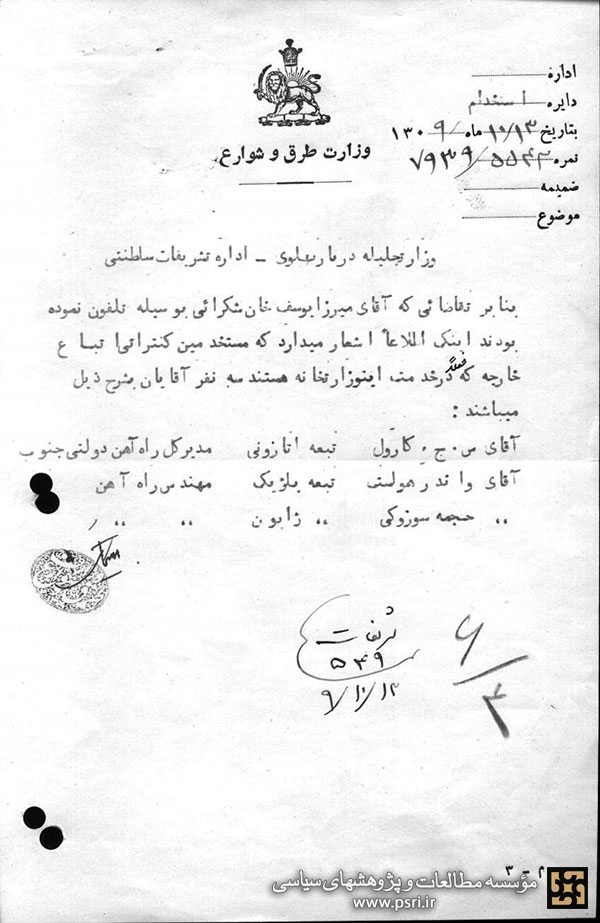 وزارت طرق و شوارع
اداره
دایره استخدام
بتاریخ ۱۰/۱۳ ماه ۱۳۰۹
نمره ۷۹۳۹/۵۵۴۴
ضمیمه
موضوع
وزارتجلیله دربار پهلوی – اداره تشریفات سلطنتی
بنا بر تقاضائی که آقای میرزا یوسف خان شکرائی بوسیله تلفون نموده
بودند اینک اطلاعاً اشعار میدارد که مستخدمین کنتراتی اتباع
خارجه که در خدمت اینوزارتخانه هستند سه نفر آقایان بشرح ذیل
میباشند :
آقای س . ج . کارول تبعه اتازونی مدیرکل راه آهن دولتی جنوب
آقای واندرهولست تبعه بلژیک مهندس راه آهن
,, حجمه سوزوکی ,, ژاپون ,, ,,
تشریفات
۵۴۹
۹/۱۰/۱۴
۳ - ۴
مؤسسه مطالعات و پژوهشهای سیاسی
www.psri.ir